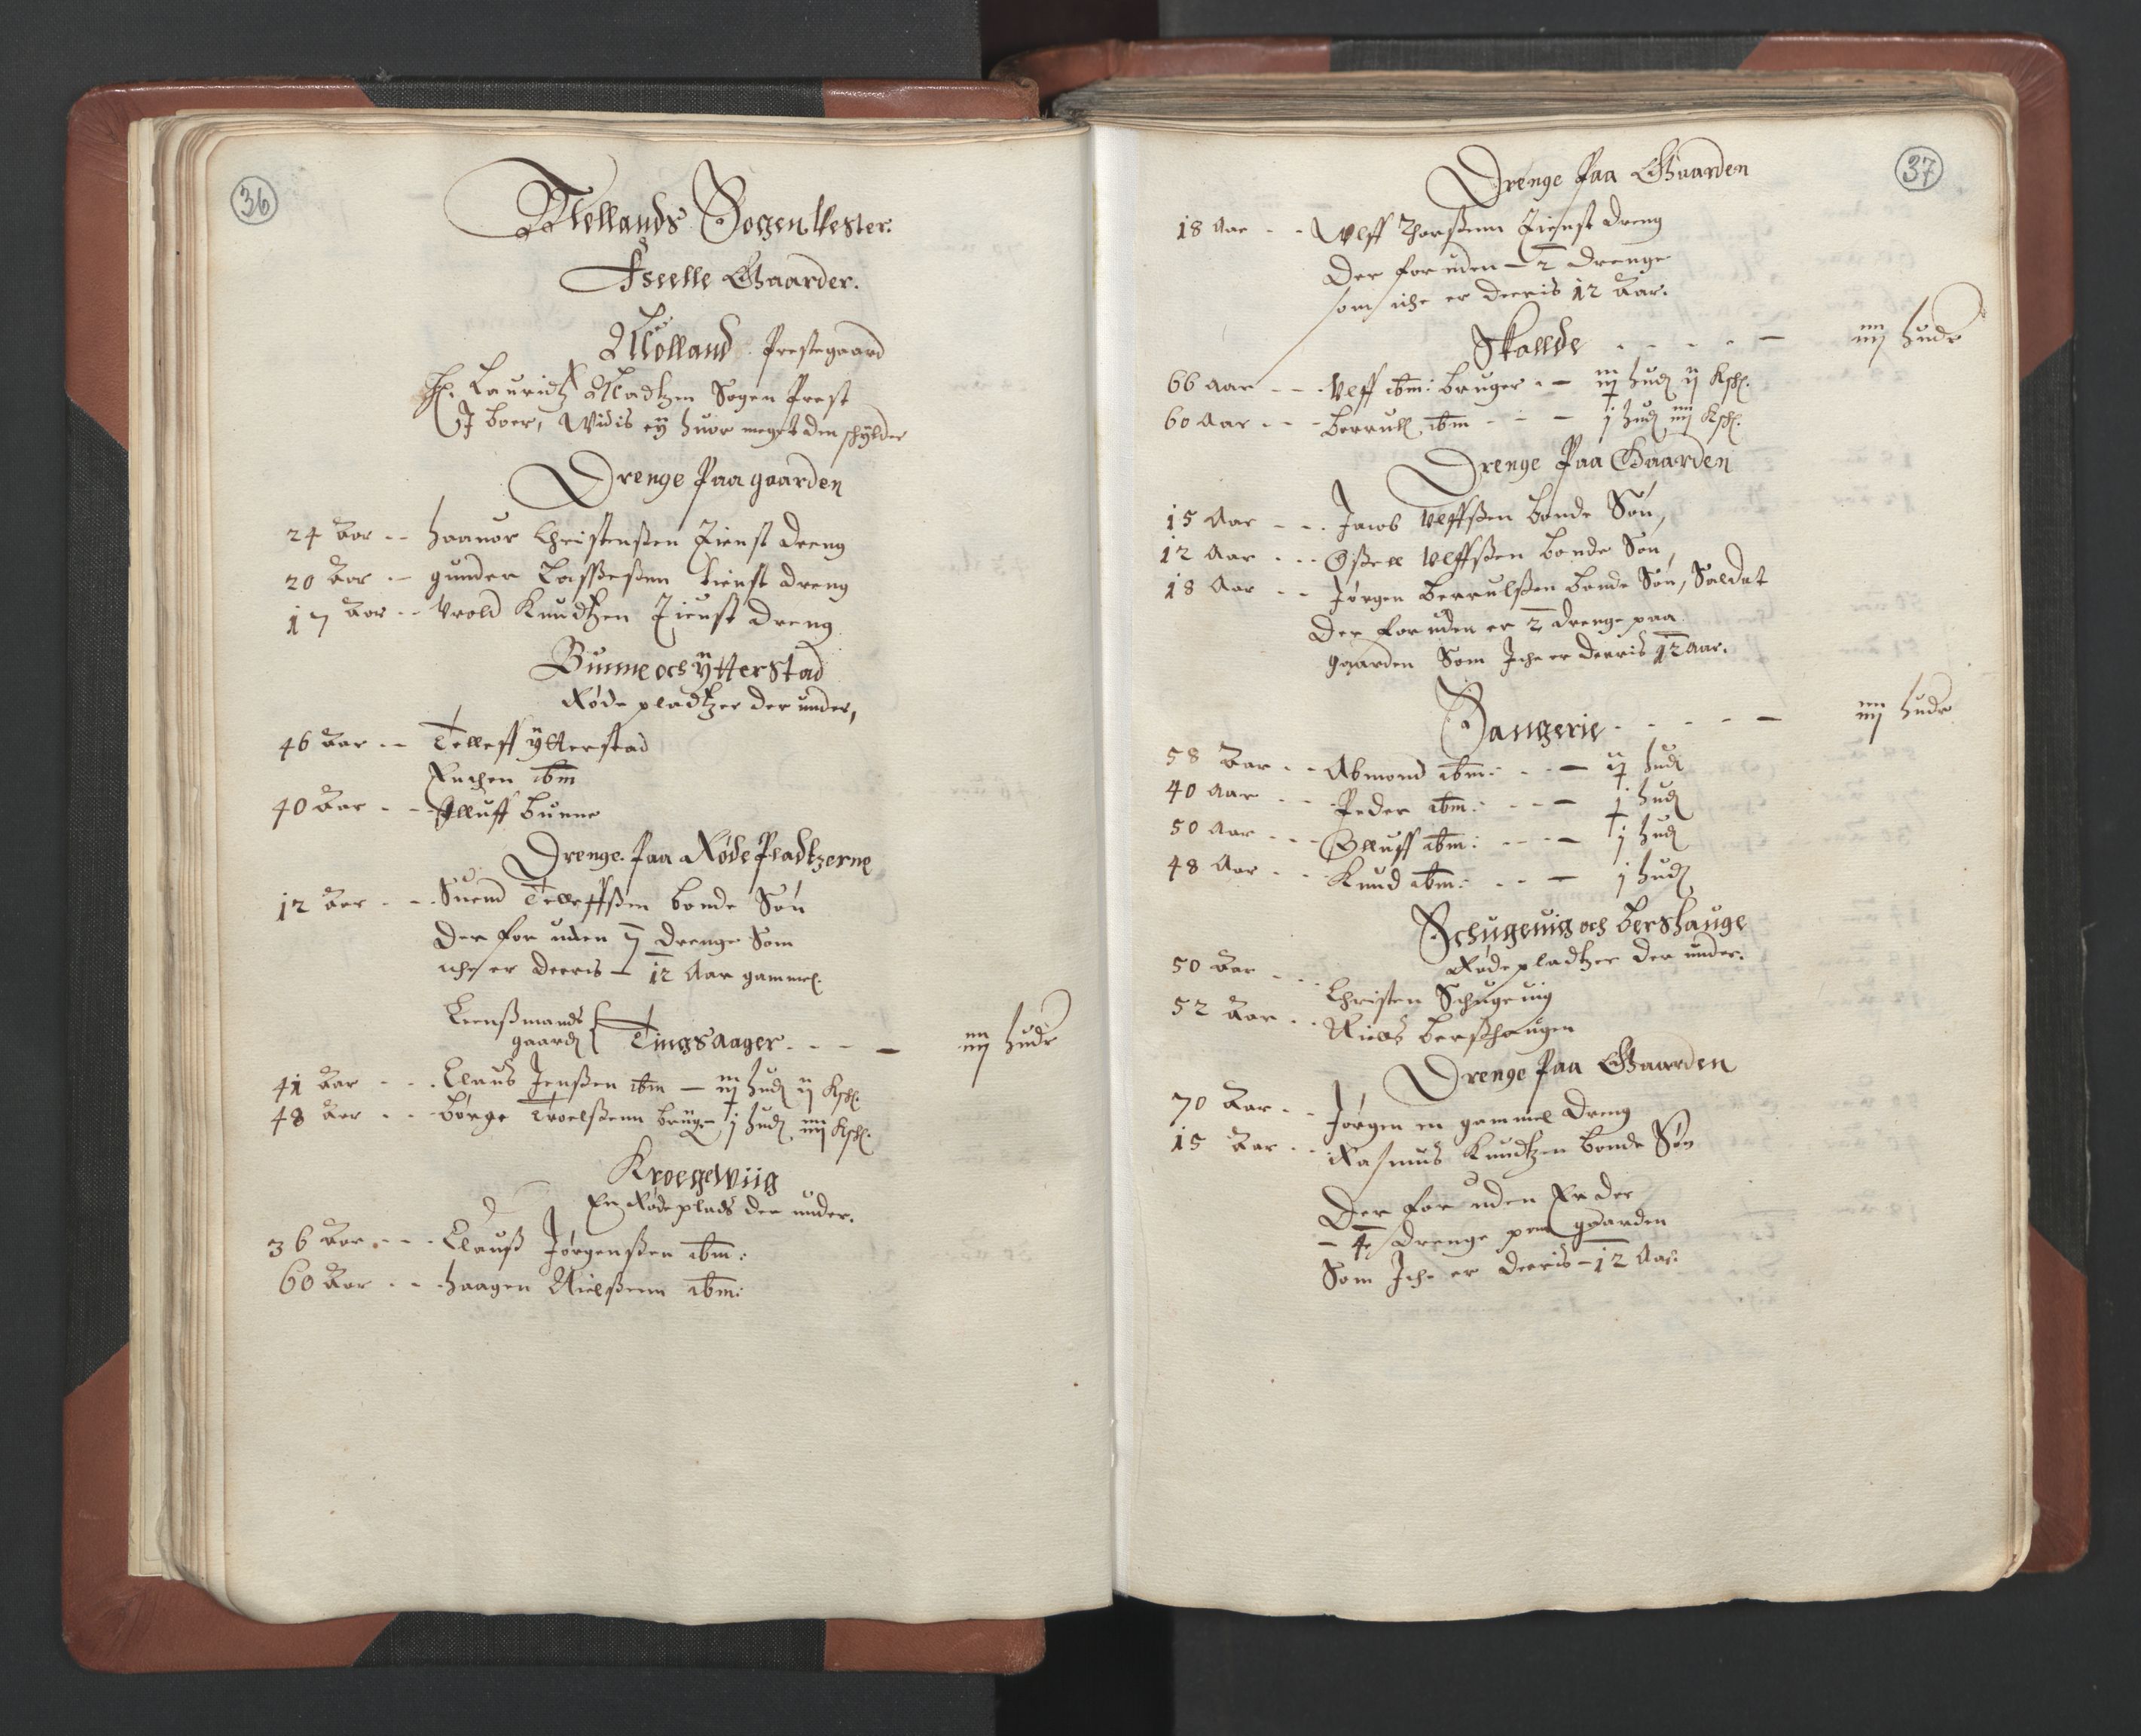 36
Mollands Sogen Vester.
Fselle Gaarder.
Molland Prestegaard
Hr. Lauridtz Madtzen Sogen Prest
J boer, Widis eÿ huor meget den schÿlder
Drenge Paa gaarden
24 Aar -- haauor Christensten Tienst dreng
20 Aar -- gunder Laffßeßen tienst dreng
17 Aar -- Vrold Knudtzen Tienst dreng
Bunne och ÿtterstad
Røde pladtzer der under,
46 Aar -- Telleff ÿtterstad
Enchen ibm
40 Aar -- Olluff bunne
Drenge Paa Røde Pladtzerne
12 Aar -- Suend Telleffßen bonde Søn
Der for uden ij drenge Som
iche er deeris - 12 Aar gammel.
Leenßmands
gaard { Tingsaager - - - - iiij hudr
41 Aar - - - Claus Jenßen ibm - iij hud ij Ksk.
48 Aar - - børge Troelßenn brüger j hud iiij Ksk.
Kroegewiig
En Røde plads der under.
36 Aar - - - Clauß Jørgenßen ibm:
60 Aar - - haagen Nielßenn ibm:
37
Drenge Paa Gaarden
18 Aar - - Vleff Thorßenn Tienst dreng
Der for uden - 2 drenge
som iche er deeris 12 Aar.
Skallde - - - - - iiij hudr
66 Aar - - - Vleff ibm: bruger - - iij hud ij Ksk.
60 Aar - - - berrull ibm - - - j hud iiij Ksk.
Drenge Paa Gaarden
15 Aar - - - Jacob Vleffßen bonde Søn,
12 Aar - - - Oßell Vleffßen bonde Søn,
18 Aar - - Jørgen berrulßen bonde Søn, Saldat
Der foruden er 2 drenge paa
gaarden Som Iche er deeris 12 Aar.
Sangerie - - - - - iiij hudr
58 Aar - - Abmond ibm: - - - ij hud
40 Aar - - Peder ibm: - - - j hud
50 Aar - - - Olluff ibm: - - - j hud
48 Aar - - Knud ibm: - - - j hud
Schugeuig och bershauge
Røde pladtzer der under.
50 Aar - - Christen Schugeuig
52 Aar - - Niels bershaugen
Drenge Paa Gaarden
70 Aar - - Jørgen en gammel dreng
15 Aar - - Rasmus Knudtzen bonde Søn
Der for uden Er der
- 4 drenge paa gaarden
Som Iche er deeris - 12 Aar.